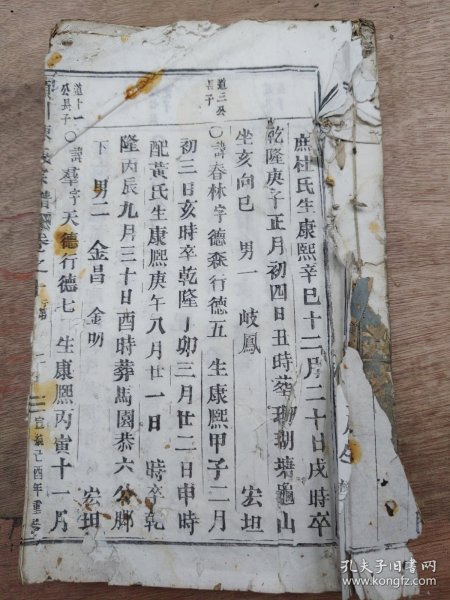 庶杜氏生康熙辛巳十二月二十日戌時卒
乾隆庚子正月初四日丑時葬珊瑚塘龜山
坐亥向巳 男一 岐鳳 宏坦
道三公
長子
〇諱春林字德森行德五 生康熙甲子二月
初三日亥時卒乾隆丁卯三月廿二日申時
配黃氏生康熙庚午八月廿一日 時卒乾
隆丙辰九月三十日酉時葬馬園恭六公腳
下 男二 金昌 金明 宏坦
道十一
公長子
〇諱羣字天德行德七 生康熙丙寅十一月
宣統己酉年重
孔夫子旧书网
www.kongfz.com